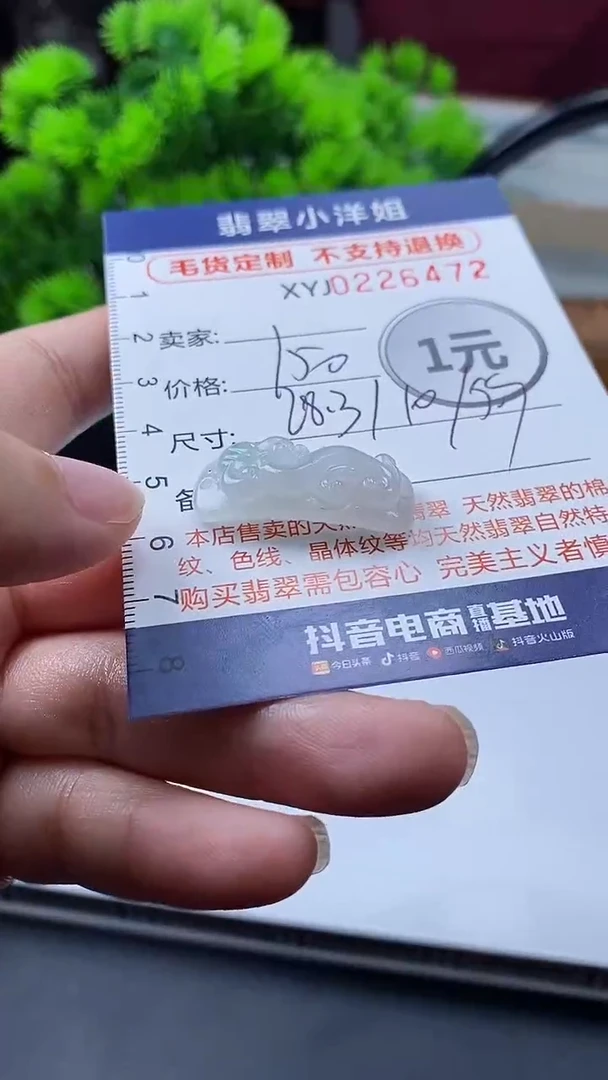 翡翠小洋姐
毛货定制 不支持退换
XYJ0226472
卖家:
1元
价格: 150
尺寸: 28.3/10/5.5
本店售卖的天 翡翠 天然翡翠的棉
纹、色线、晶体纹等均天然翡翠自然特
购买翡翠需包容心 完美主义者慎
抖音电商直播基地
今日头条 抖音 西瓜视频 抖音火山版
0 1 2 3 4 5 6 7 8